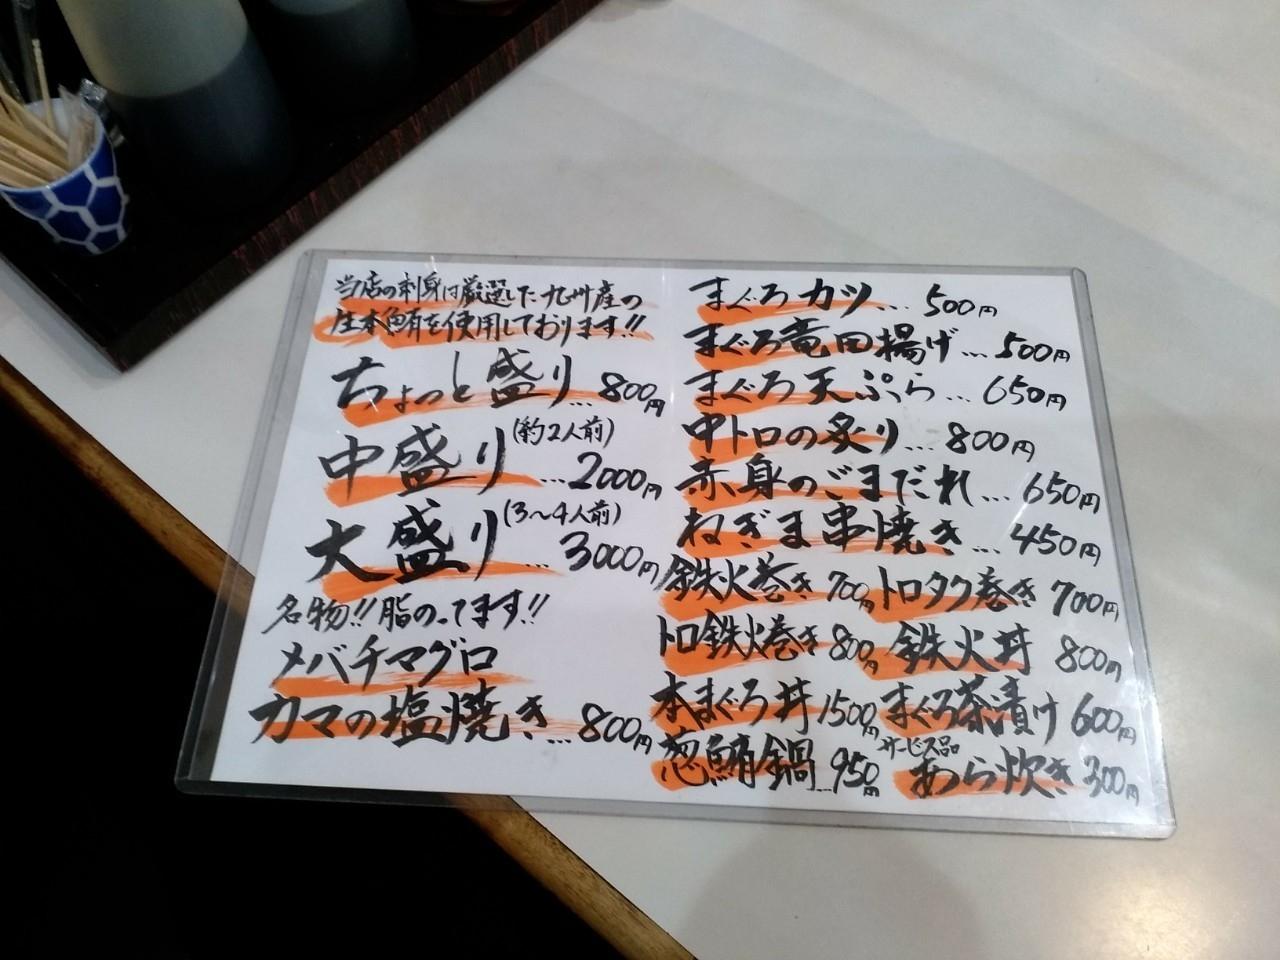 当店の刺身は厳選した九州産の
生本鮪を使用しております!!
ちょっと盛り...800円
中盛り(約2人前)...2000円
大盛り(3〜4人前)...3000円
名物!!脂のってます!!
メバチマグロ
カマの塩焼き...800円
まぐろカツ...500円
まぐろ竜田揚げ...500円
まぐろ天ぷら...650円
中トロの炙り...800円
赤身のごまだれ...650円
ねぎま串焼き...450円
鉄火巻き700円 トロタク巻き700円
トロ鉄火巻き800円 鉄火丼800円
本まぐろ丼1500円 まぐろ茶漬け600円
葱鮪鍋...950円 サービス品 あら炊き300円